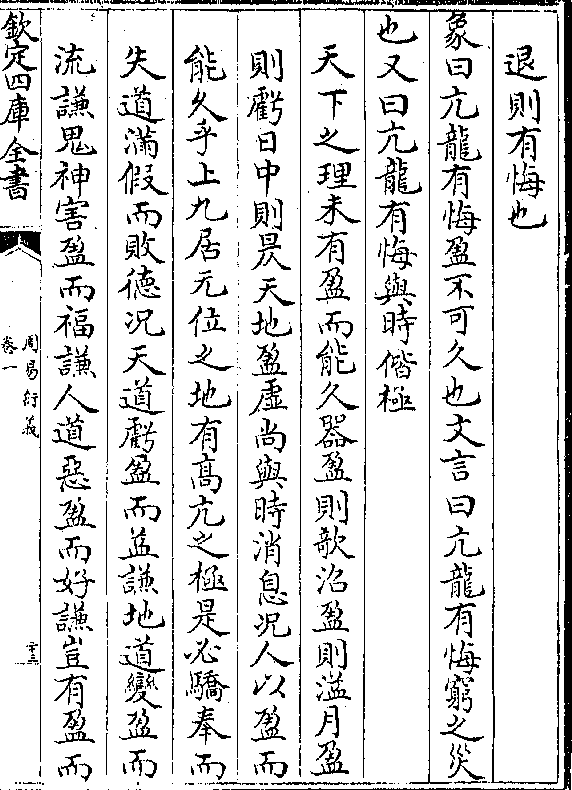 退則有悔也
象曰亢龍有悔盈不可久也文言曰亢龍有悔窮之災
也又曰亢龍有悔與時偕極
天下之理未有盈而能久器盈則欹沼盈則溢月盈
則虧日中則昃天地盈虛尚與時消息况人以盈而
能久乎上九居无位之地有髙亢之極是必驕奉而
失道滿假而敗德况天道虧盈而益謙地道變盈而
流謙鬼神害盈而福謙人道惡盈而好謙豈有盈而
欽定四庫全書
周易衍義
卷一